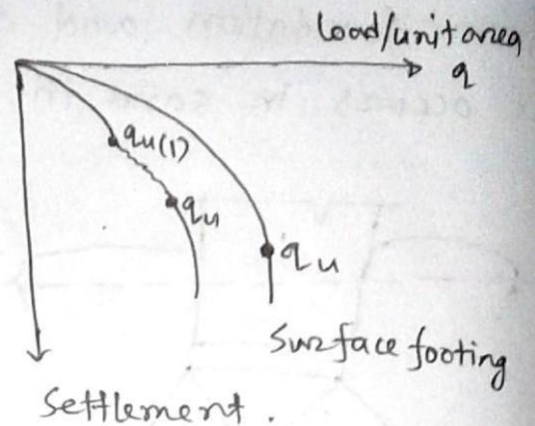 load/unit area
q
qu(1)
qu
qu
Surface footing
Settlement.